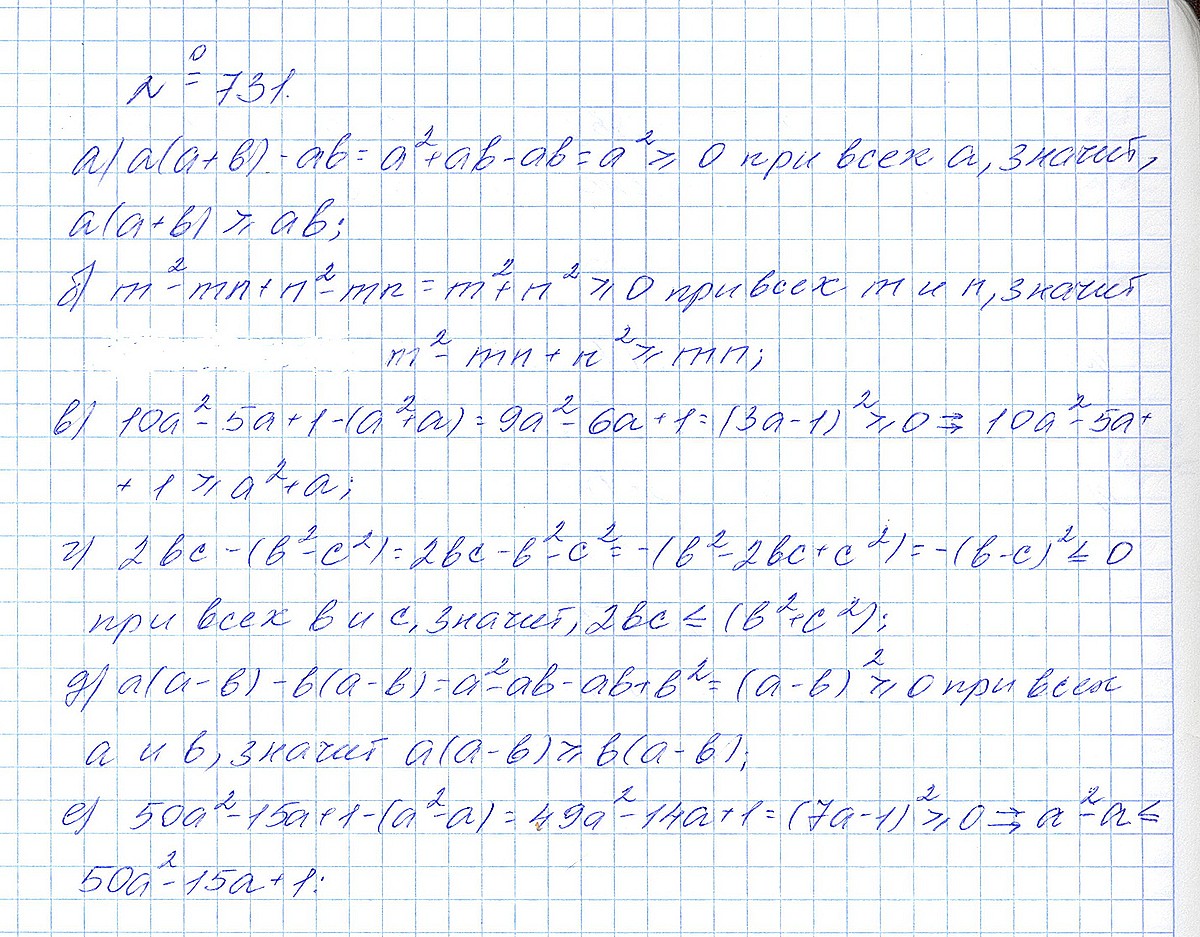 № 731.
а) a(a+в)-aв=a²+aв-aв=a²⩾0 при всех a, значит,
a(a+в)⩾aв;
б) m²-mn+n²-mn=m²+n²⩾0 при всех m и n, значит
m²-mn+n²⩾mn;
в) 10a²-5a+1-(a²+a)=9a²-6a+1=(3a-1)²⩾0⇒10a²-5a+
+1⩾a²+a;
г) 2вc-(в²-c²)=2вc-в²-c²=-(в²-2вc+c²)=-(в-c)²≤0
при всех в и c, значит, 2вc≤(в²+c²);
д) a(a-в)-в(a-в)=a²-aв-aв+в²=(a-в)²⩾0 при всех
a и в, значит a(a-в)⩾в(a-в);
е) 50a²-15a+1-(a²-a)=49a²-14a+1=(7a-1)²⩾0⇒a²-a≤
50a²-15a+1: